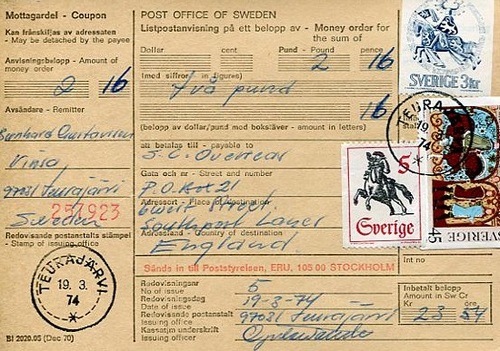 Mottagardel - Coupon
Kan frånskiljas av adressaten
- May be detached by the payee
Anvisningsbelopp - Amount of
money order
2 16
Avsändare - Remitter
Vinsa,
97031
Sweden
257923
Redovisande postanstalts stämpel
- Stamp of issuing office
TEURAJÄRVI
19. 3.
74
*
BI 2020.05 (Dec 70)
POST OFFICE OF SWEDEN
Listpostanvisning på ett belopp av - Money order for
the sum of
Dollar cent Pund - Pound pence
2 16
(med siffror in figures)
två pund
16
(belopp av dollar/pund med bokstäver - amount in letters)
att betalas till - payable to
S.C. Overseas
Gata och nr - Street and number
P.O.Box 21
Adressort - Place of destination
Street
Southport Lancs
Adressland - Country of destination
England
Sänds in till Poststyrelsen, ERU, 105 00 STOCKHOLM
Redovisningsnr
No of issue
5
Redovisningsdag
Date of issue
19-3-74
Redovisande postanstalt
Issuing office
97031
Kassatjm underskrift
Issuing officer
Int no
Inbetalt belopp
Amount in Sw Cr
Kr öre
23 54
SVERIGE 3kr
5
Sverige
45
SVERIGE
19
74
*